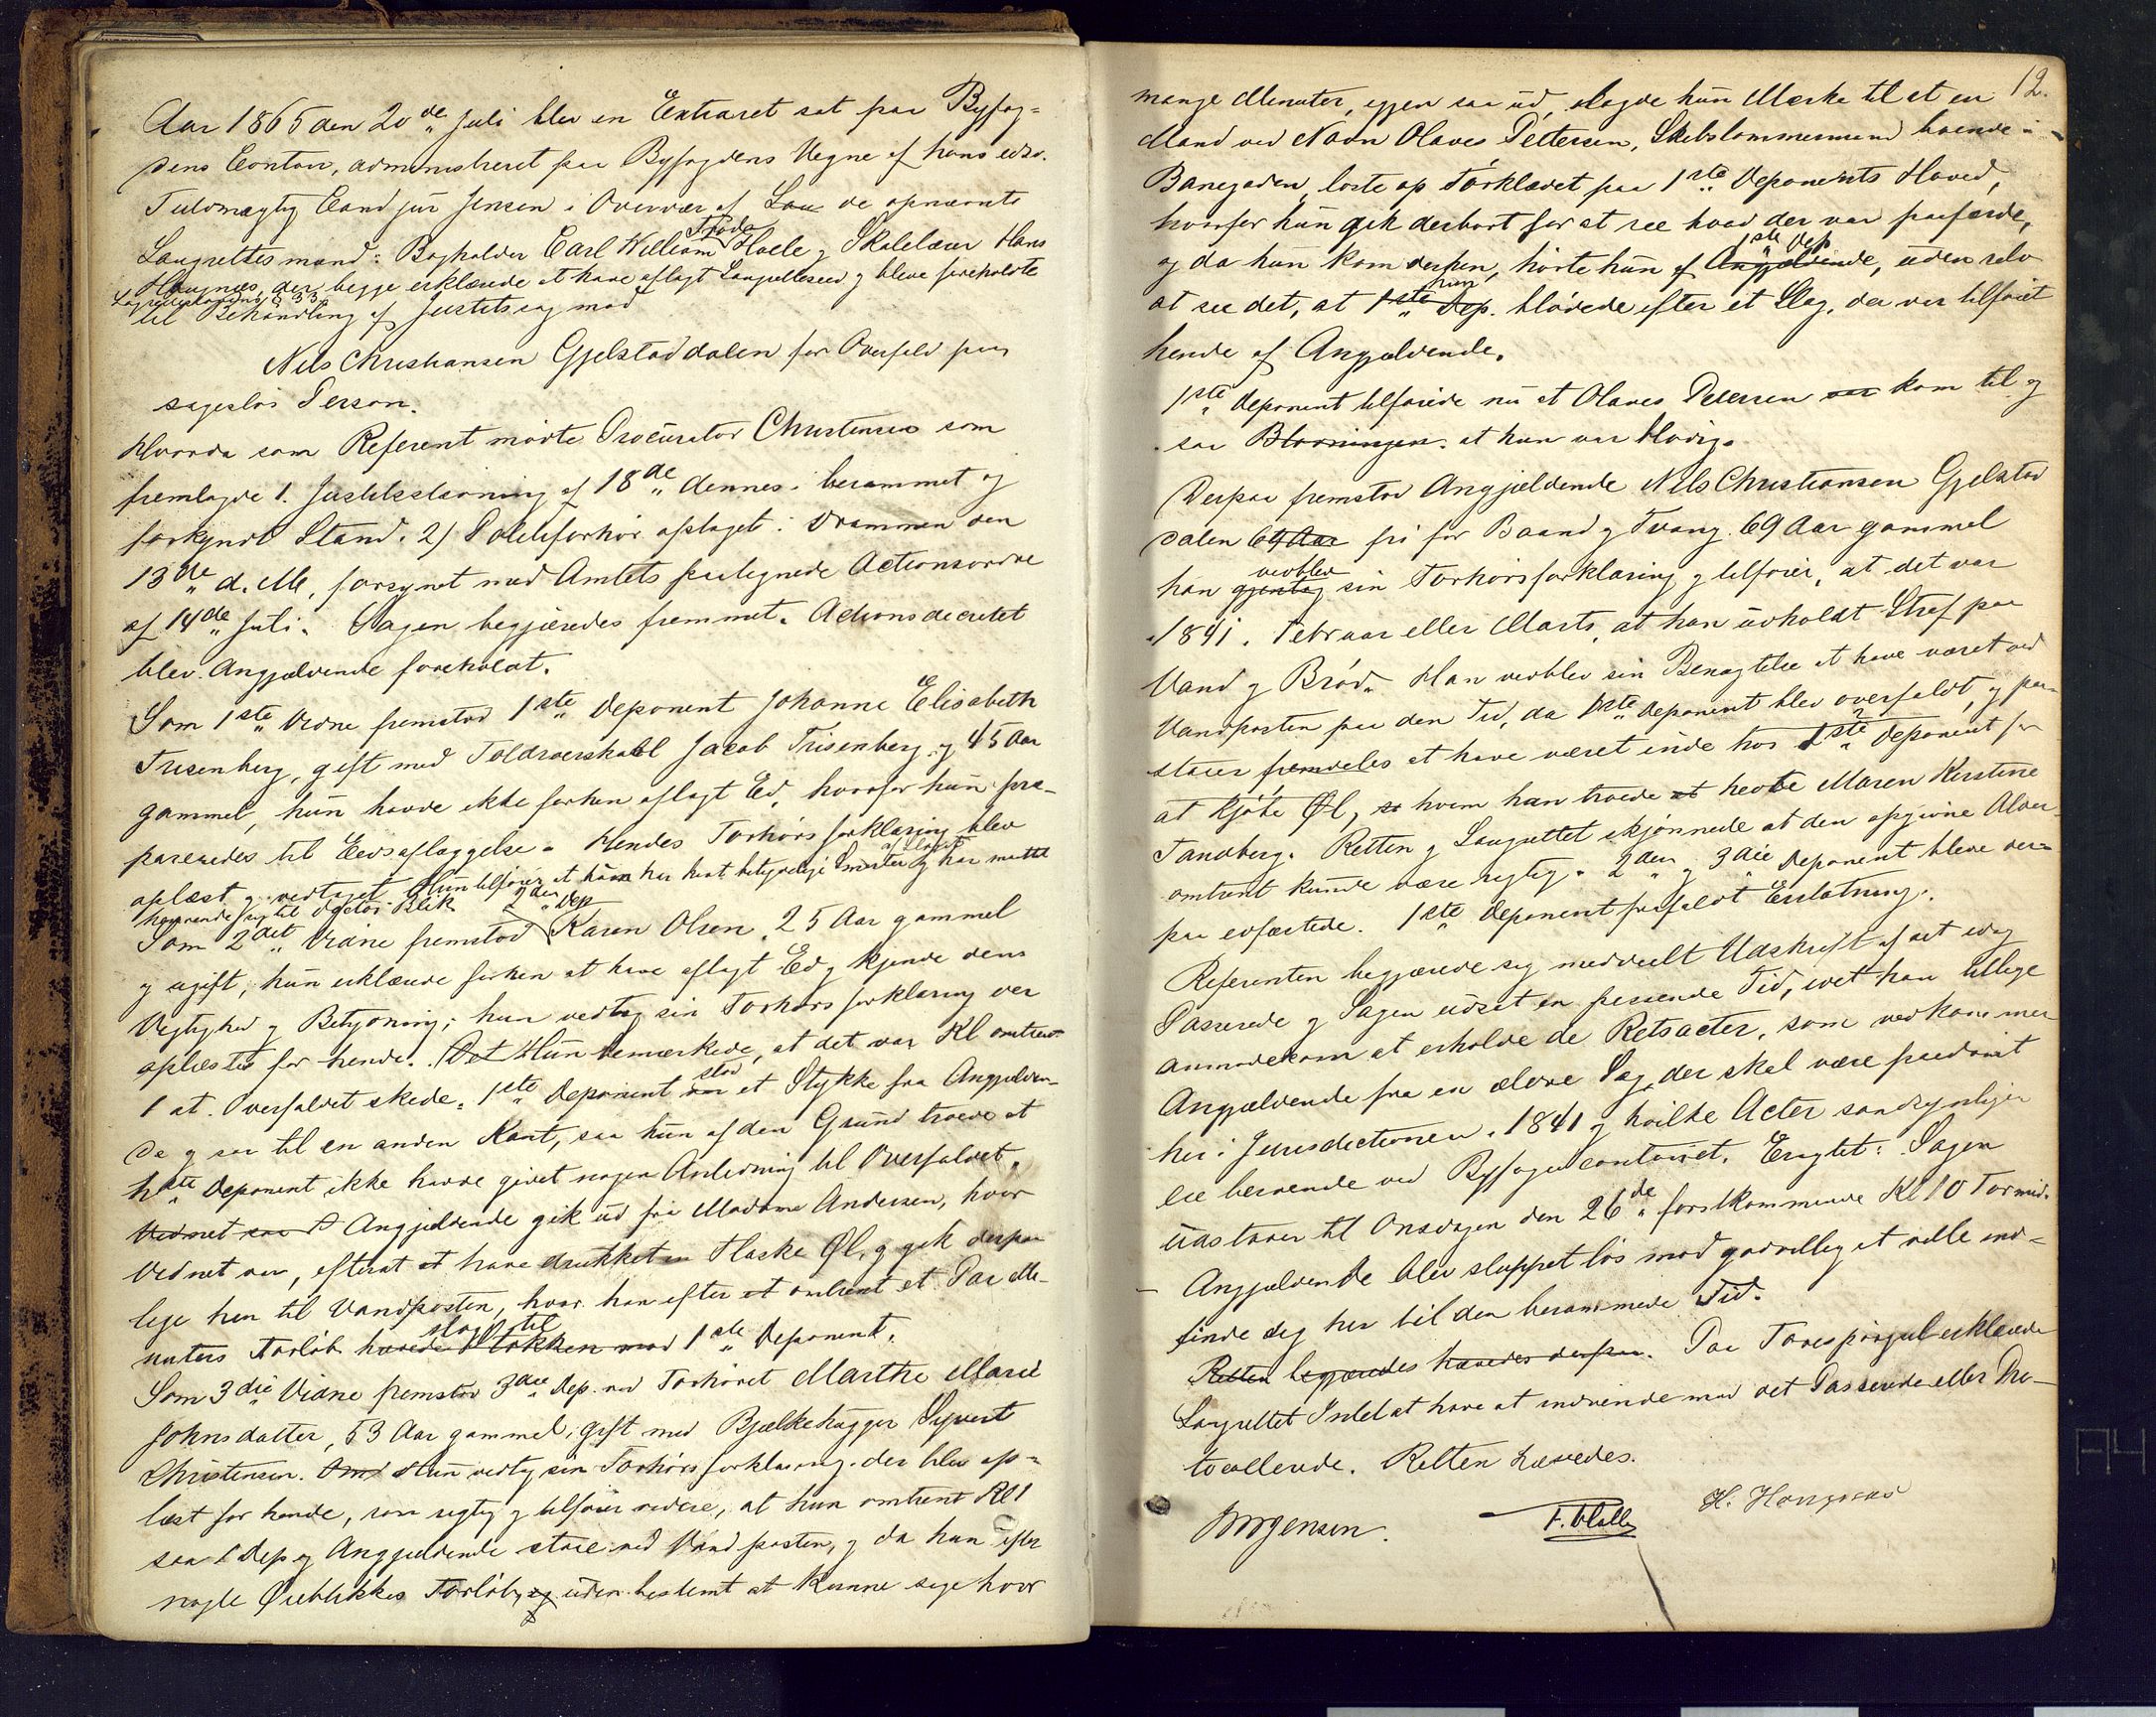 Aar 1865 den 20de Juli blev en Extraret sat paa Byfog-
dens Contoir, administreret paa Byfogdens Vegne af hans edsv.
Fuldmægtig Cand jur Jensen i Overvær af Lau de opnævnte
Laugrettesmænd: Bogholder Carl William Thode Halle og Skolelærer Hans
Haugnæs, der begge erklærede at have aflagt Laugrettesed og bleve foreholdte
§ 33
til Behandling af Justitssag mod
Nils Christiansen Gjelstaddalen for Overfald paa
sagesløs Person.
Hvorda som Referent mødte Procurator Christensen som
fremlagde 1. Justitsstævning af 18de dennes i berammet og
forkyndt Stand. 2) Politiforhør optaget i Drammen den
13de d. M., forsynet med Amtets paategnede Actionsordre
af 14de Juli. Sagen begjæredes fremmet. Actionsdecretet
blev Angjældende foreholdt.
Som 1ste Vidne fremstod 1ste Deponent Johanne Elisabeth
Frisenberg, gift med Toldroerskarl Jacob Frisenberg, og 45 Aar
gammel, hun havde ikke forhen aflagt Ed, hvorfor hun præ-
pareredes til Eedsaflæggelse. Hendes Forhørsforklaring blev
oplæst og vedtaget. Hun tilføier at hun har havt betydelige Smerter af Slaget og har maatte
henvende sig til Doctor Blik
Som 2det Vidne fremstod 2den Dep Karen Olsen, 25 Aar gammel
og ugift, hun erklærede forhen at have aflagt Ed og kjende dens
Vigtighed og Betydning; hun vedtog sin Forhørsforklaring der
oplæstes for hende. Det Hun bemærkede, at det var Kl omtrent
1 at Overfaldet skede. 1ste Deponent var stod et Stykke fra Angjælden-
de og saa til en anden Kant, saa hun af den Grund troede at
1ste Deponent ikke havde givet nogen Anledning til Overfaldet.
Vidnet saa at Angjældende gik ud fra Madame Andersen, hvor
Vidnet var, efterat at have drukket en Flaske Øl, og gik derpaa
lige hen til Vandposten, hvor han efter et omtrent et Par Mi-
nuters Forløb hævede Stokken mod slog til 1ste Deponent.
Som 3die Vidne fremstod 3die Dep. ved Forhøret Marthe Marie
Johnsdatter, 53 Aar gammel, gift med Bjælkehugger Syvert
Christensen. Om Hun vedtog sin Forhørsforklaring der blev op-
læst for hende, som rigtig og tilføier videre, at hun omtrent Kl 1
saa 1 Dep og Angjældende staae ved Vandposten, og da hun efter
nogle Øieblikkes Forløb, og uden bestemt at kunne sige hvor
12.
mange Minuter, igjen saa ud, lagde hun Mærke til at en
Mand ved Navn Olaves Pettersen, Skibstømmermand boende i
Banegaden, løste op Tørklædet paa 1ste Deponents Hoved,
hvorfor hun gik derbort for at see hvad der var paafærde,
og da hun kom derhen, hørte hun af Angjældende 1ste Dep, uden selv
at see det, at 1ste Dep. hun blødede efter et Slag, der var tilføiet
hende af Angjældende.
1ste Deponent tilføiede nu at Olaves Petersen var kom til og
saa Blødningen. at hun var blodig.
Derpaa fremstod Angjældende Nils Christiansen Gjelstad
dalen 69 Aar fri for Baand og Tvang. 69 Aar gammel
han gjentog vedblev sin Forhørsforklaring og tilføier, at det var
i 1841 i Februar eller Marts, at han udholdt Straf paa
Vand og Brød. Han vedblev sin Benægtelse at have været ved
Vandposten paa den Tid, da 1ste Deponent blev overfaldt, og paa-
staaer fremdeles at have været inde hos 1ste Deponent for
at kjøbe Øl, hvem han troede at hedte Maren Kirstine
Tandberg. Retten og Laugrettet skjønnede at den opgivne Alder
omtrent kunde være rigtig. 2den og 3die Deponent bleve der-
paa edfæstede. 1ste Deponent frafaldt Erstatning.
Referenten begjærede sig meddeelt Udskrift af det idag
Passerede og Sagen udsat en passende Tid, idet han tillige
anmodede om at erholde de Retsacter, som vedkommer
Angjældende fra en ældre Sag, der skal være paadømt
her i Jurisdictionen i 1841 og hvilke Acter sandsynligen
ere beroende ved Byfogedcontoiret. Eragtet: Sagen
udstaaer til Onsdagen den 26de førstkommende Kl 10 Formid.
Angjældende blev sluppet løs mod godvillig at ville ind-
finde sig her til den berammede Tid.
Retten begjæredes hævedes derpaa. Paa Forespørgsel erklærede
Laugrettet Intet at have at indvende mod det Passerede eller Pro-
tocollerede. Retten hævedes.
Jensen. T. Halle H. Haugnæs